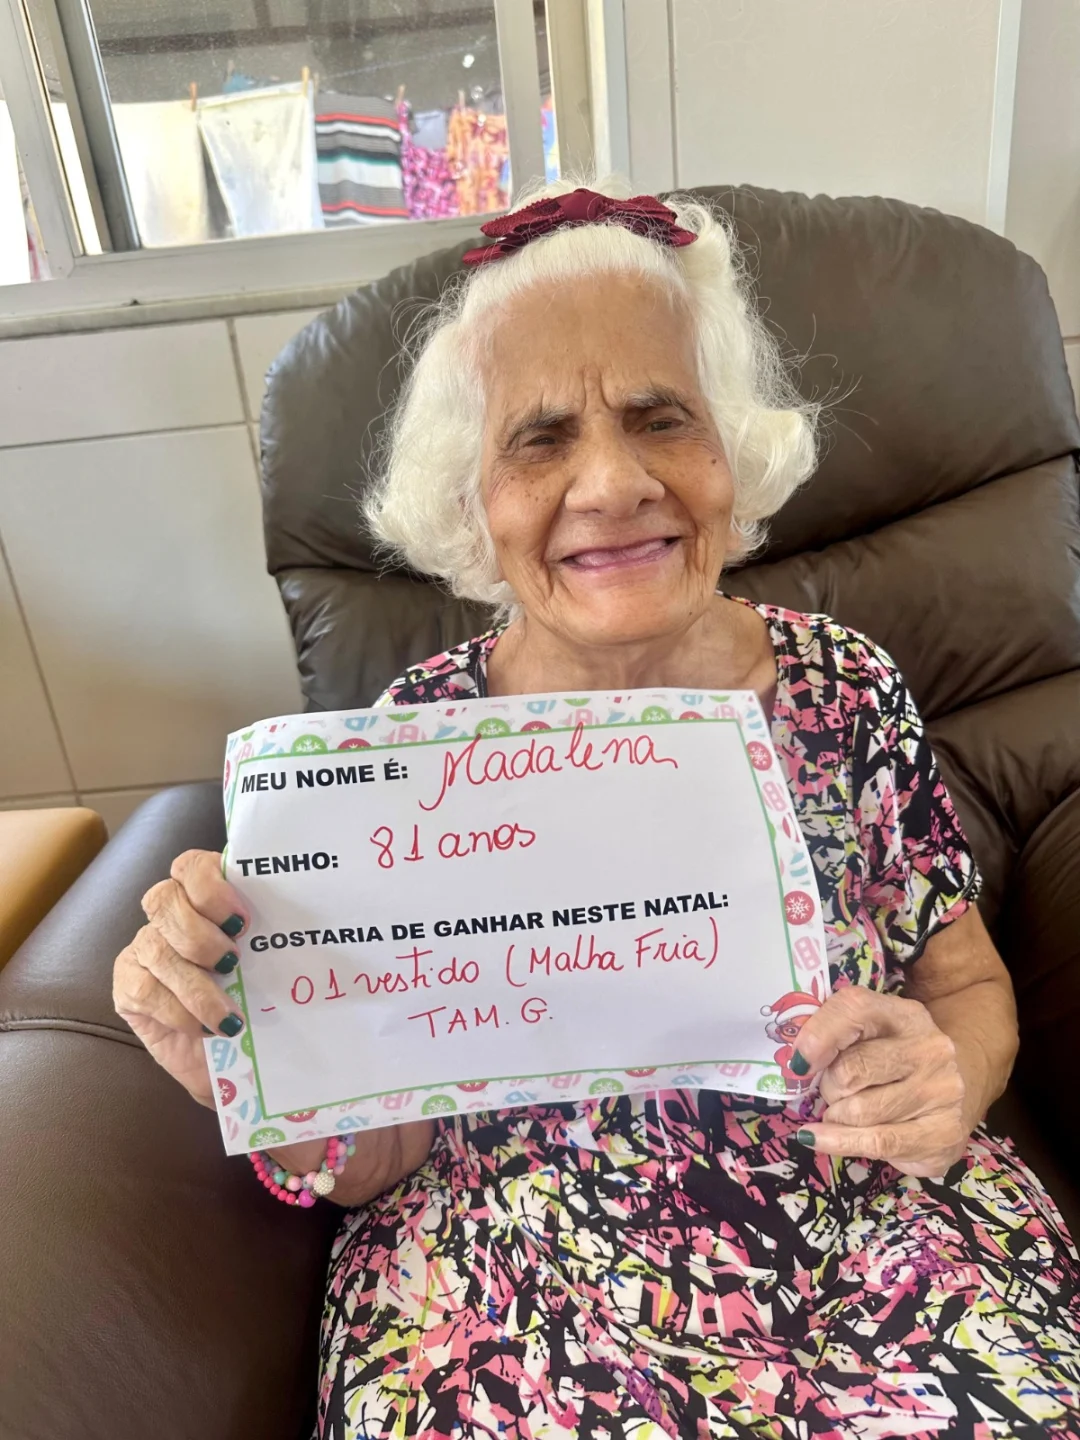 MEU NOME É: Madalena
TENHO: 81 anos
GOSTARIA DE GANHAR NESTE NATAL:
- 01 vestido (Malha Fria)
TAM. G.